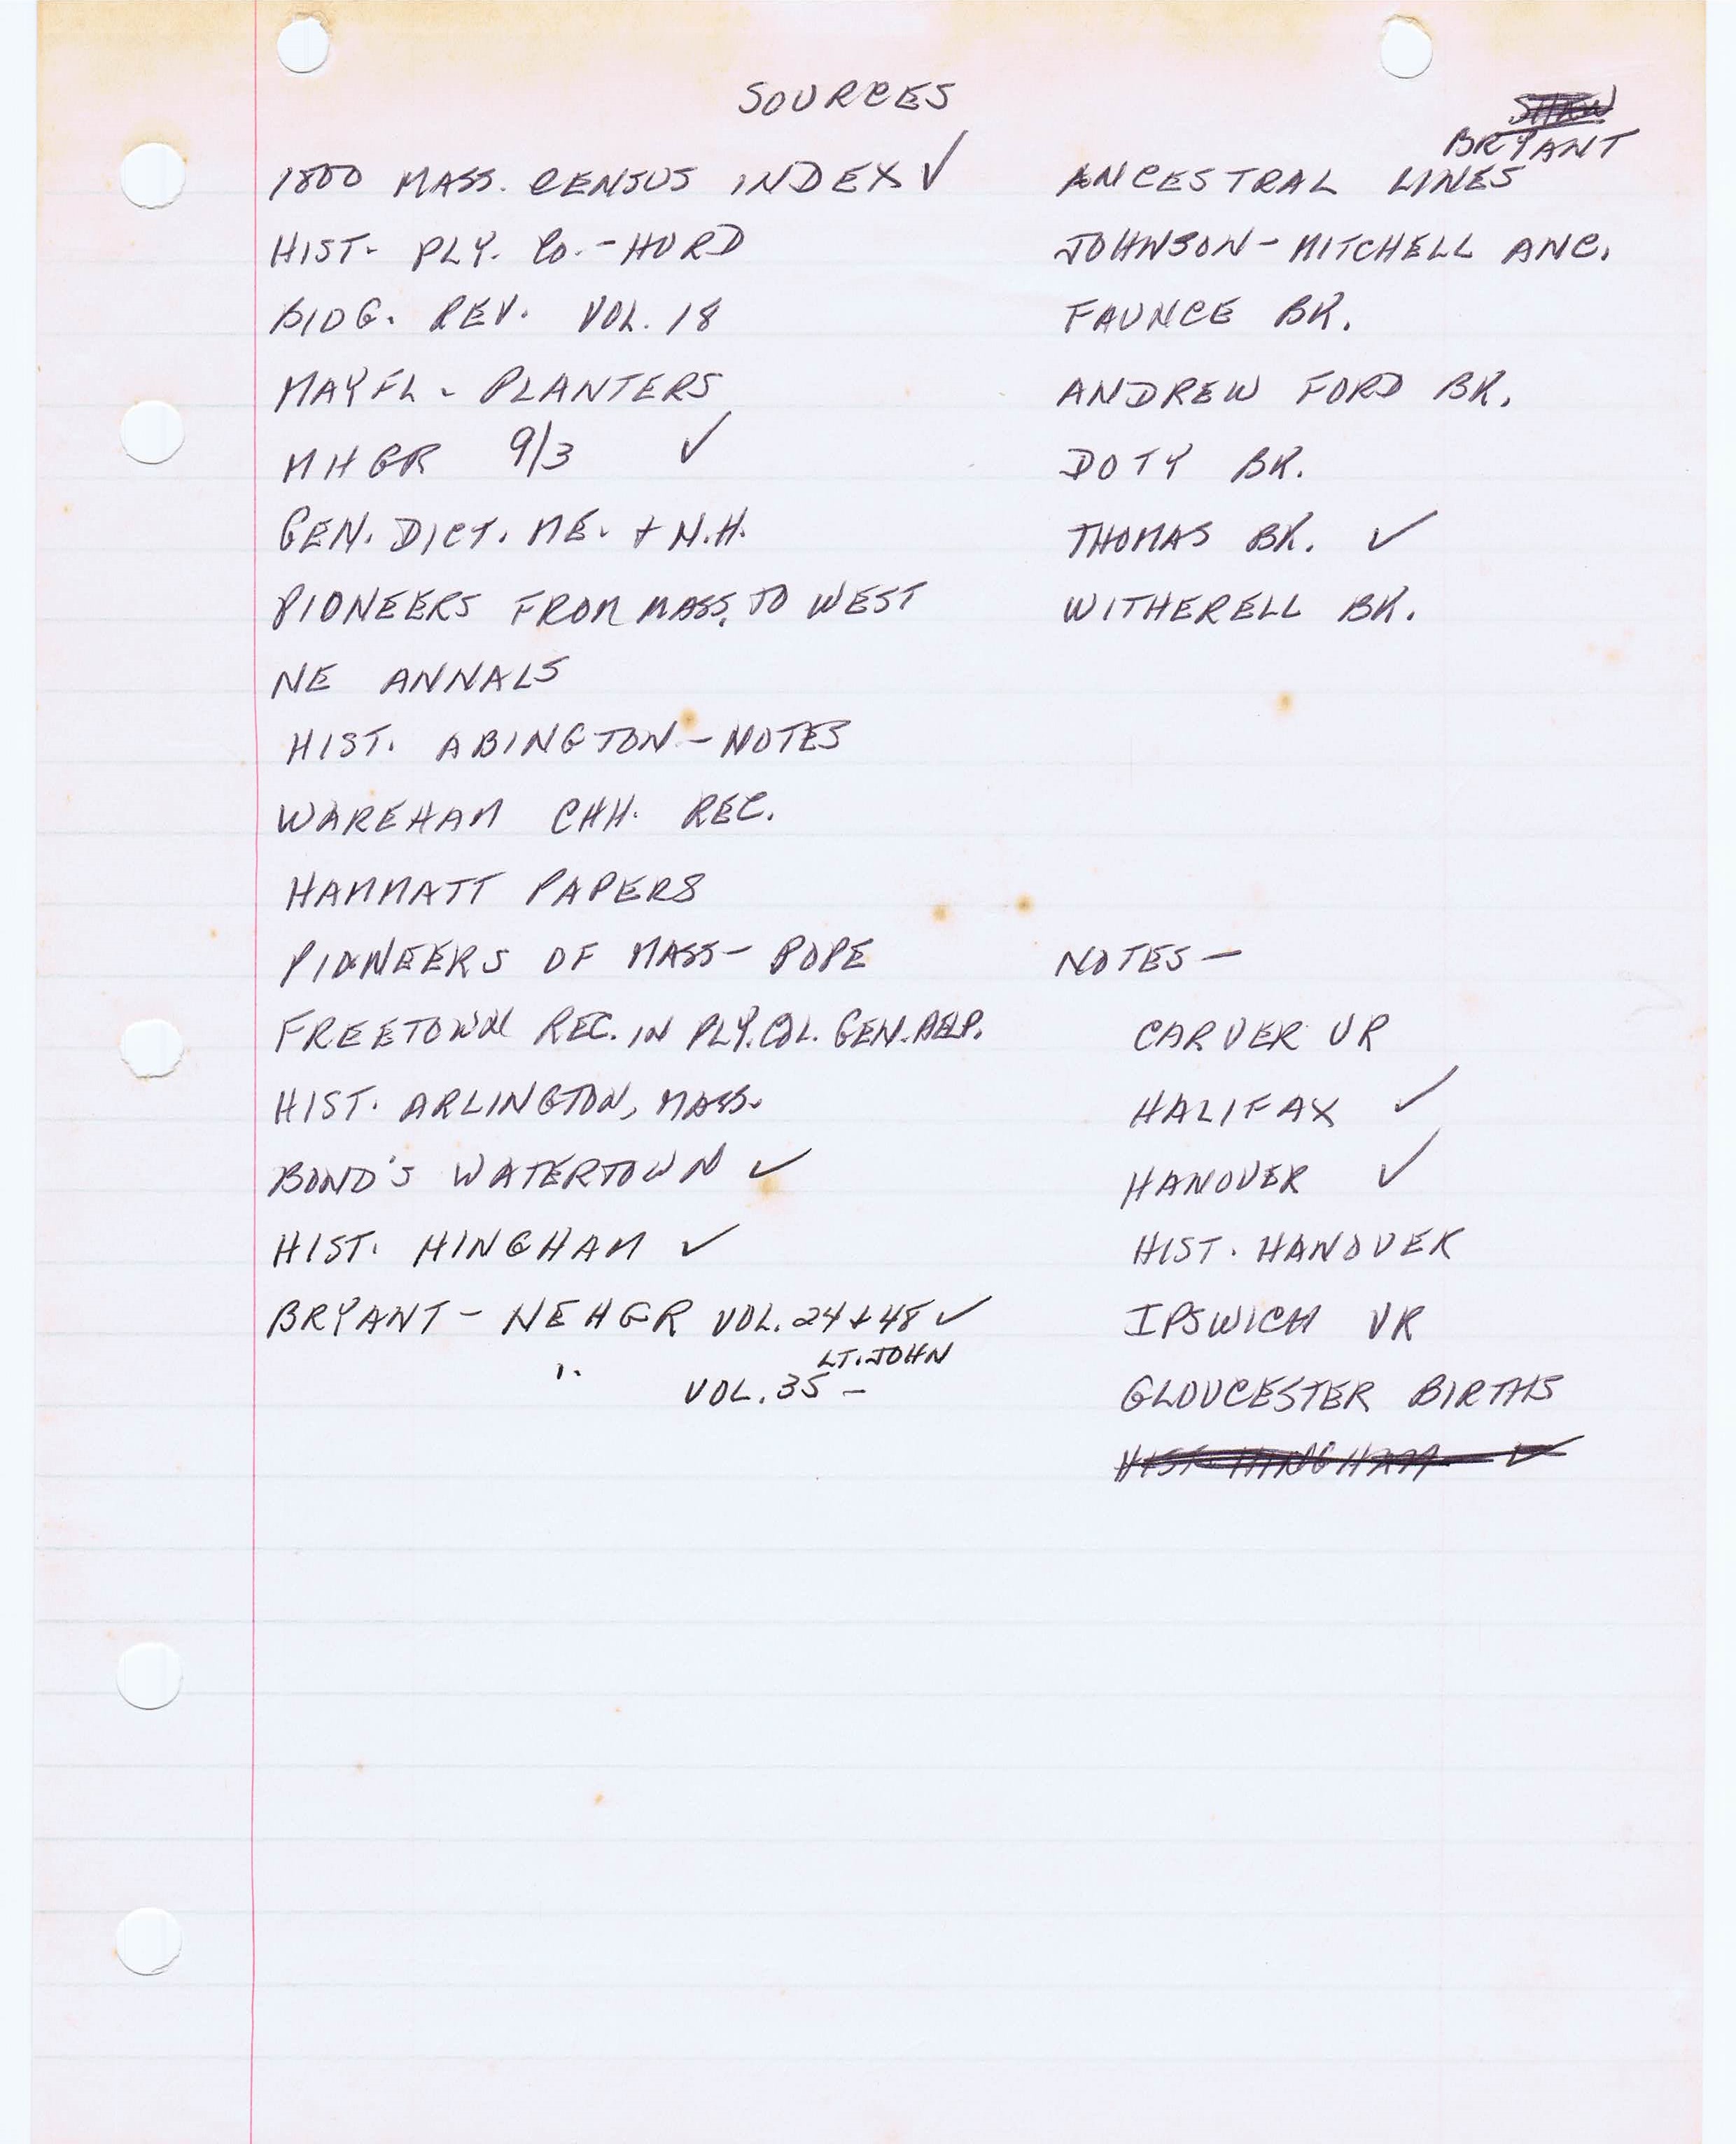 SOURCES
SHAW
BRYANT
1800 MASS. CENSUS INDEX ✓
HIST. PLY. CO. - HURD
BIOG. REV. VOL. 18
MAYFL - PLANTERS
MHGR 9/3 ✓
GEN. DICT. ME. + N.H.
PIONEERS FROM MASS. TO WEST
NE ANNALS
HIST. ABINGTON - NOTES
WAREHAM CHH. REC.
HAMMATT PAPERS
PIONEERS OF MASS - POPE
FREETOWN REC. IN PLY. COL. GEN. HELP.
HIST. ARLINGTON, MASS.
BOND'S WATERTOWN ✓
HIST. HINGHAM ✓
BRYANT - NEHGR VOL. 24 + 48 ✓
LT. JOHN
" VOL. 35 -
ANCESTRAL LINES
JOHNSON - MITCHELL ANC.
FAUNCE BK.
ANDREW FORD BK.
DOTY BK.
THOMAS BK. ✓
WITHERELL BK.
NOTES -
CARVER VR
HALIFAX ✓
HANOVER ✓
HIST. HANOVER
IPSWICH VR
GLOUCESTER BIRTHS
HIST. HINGHAM ✓